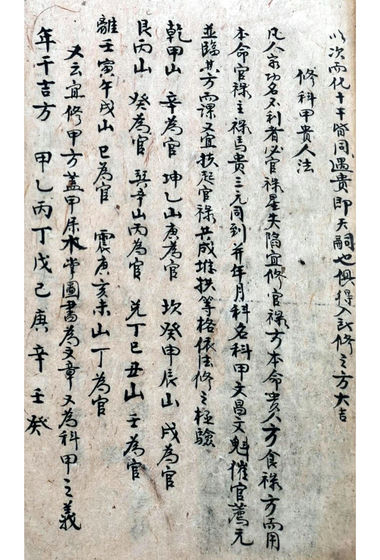 以次而化十干皆同遇貴即天嗣也俱得入所修之方大吉
修科甲貴人法
凡人家功名不利者必官祿星失陷宜修官祿方本命貴人方食祿方而用
本命官祿主祿馬貴三元同到并年月科名科甲文昌文魁催官薦元
並臨其方而課又宜扶起官祿共成堆扶等格依法修之極驗
乾甲山 辛為官 坤乙山庚為官 坎癸申辰山 戌為官
艮丙山 癸為官 巽辛山丙為官 兌丁巳丑山 壬為官
離壬寅午戌山 巳為官 震庚亥未山 丁為官
又云宜修甲方蓋甲屬木掌圖書為文章又為科甲之義
年干吉方 甲乙丙丁戊己庚辛壬癸